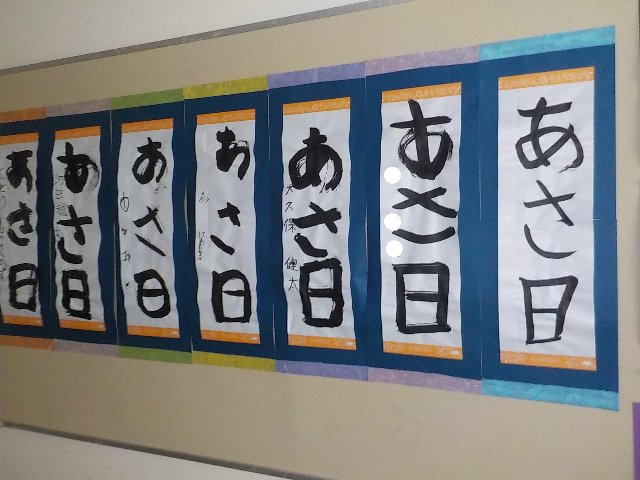 あさ日
あさ日
あさ日
大久保 健太
あさ日
あさ日
あさ日
あさ日